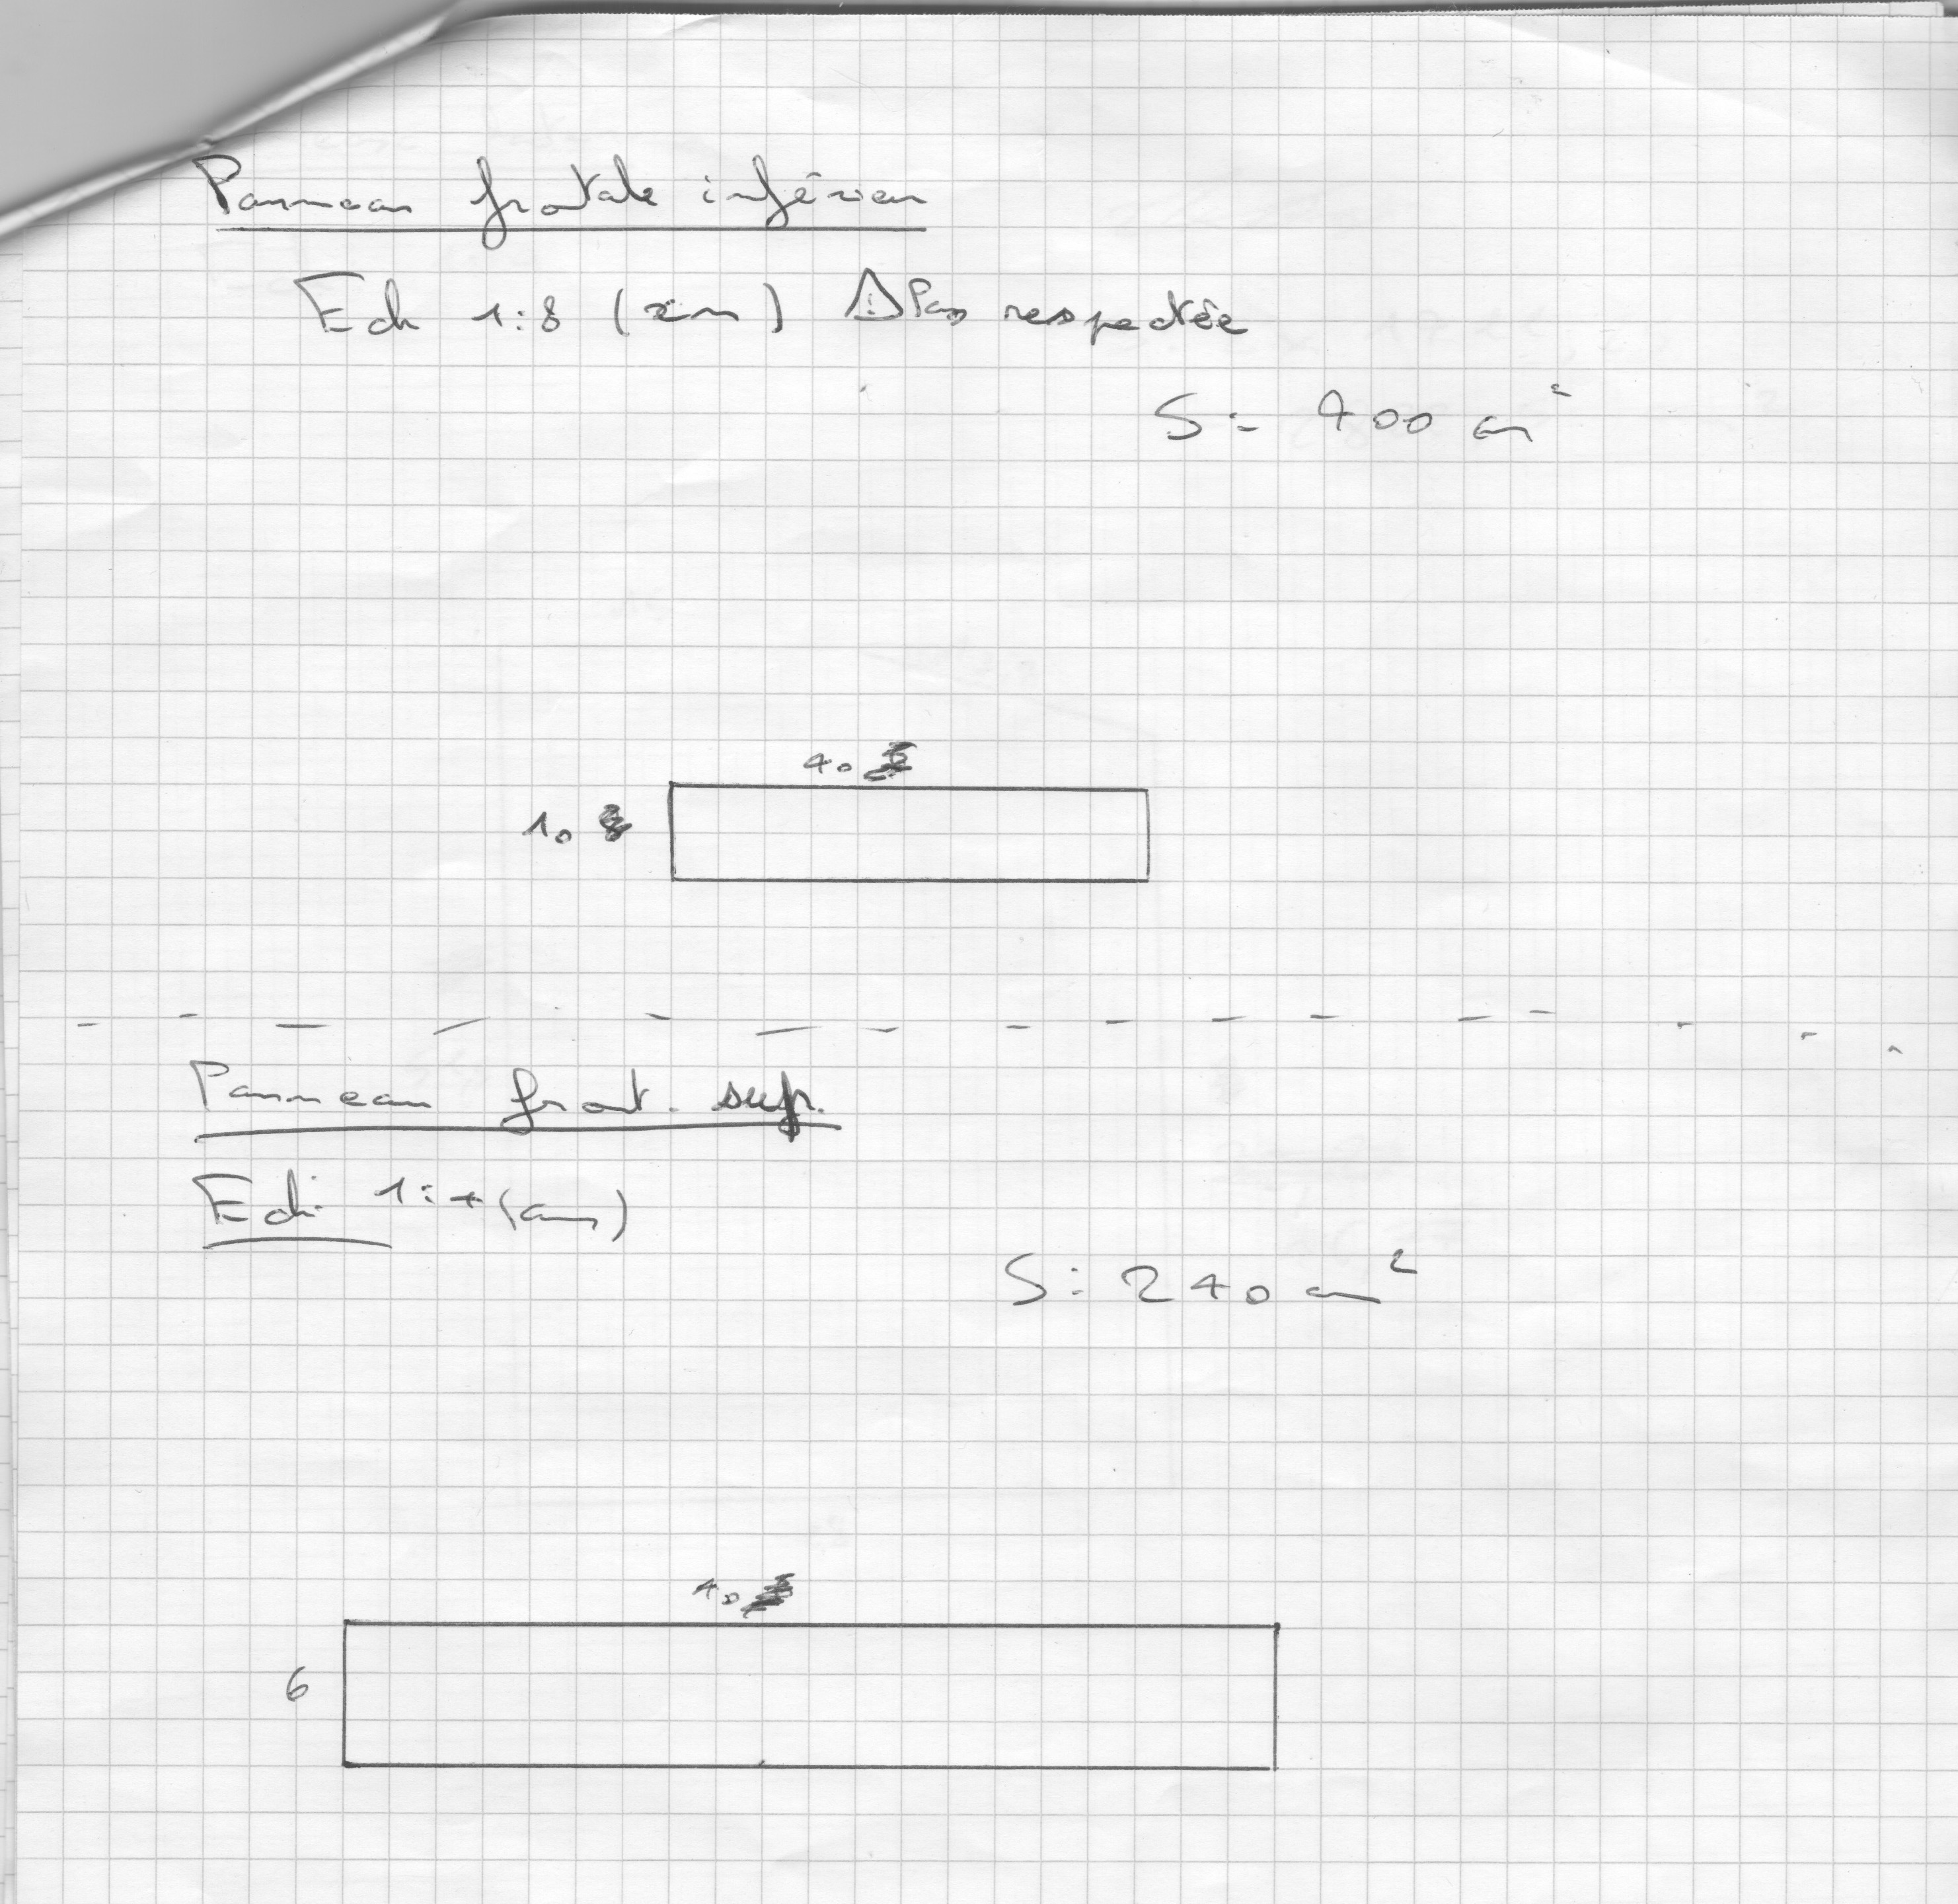 Panneau frontale inférieur
Ech 1:8 (cm) ⚠ Pas respectée
S = 400 cm²
40
10
Panneau front. sup.
Ech 1:4 (cm)
S: 240 cm²
40
6